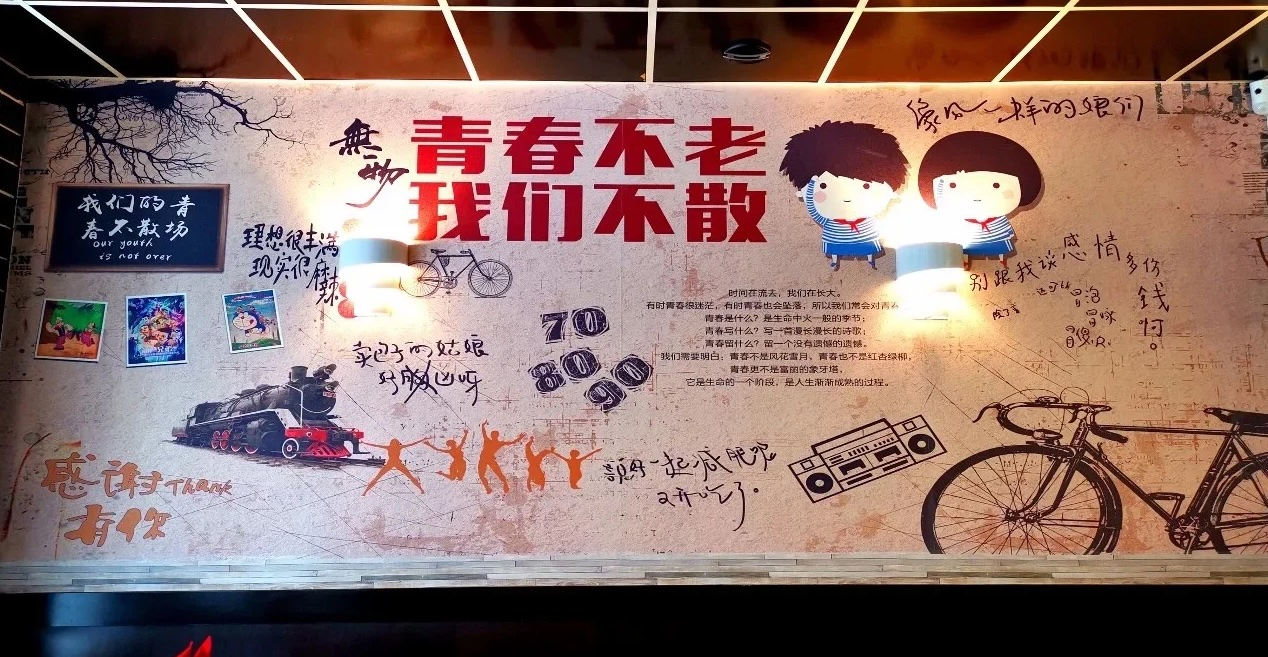 青春不老
我们不散
我们的青
春不散场
our youth
is not over
理想很丰满
现实很麻辣
像风一样的娘们
别跟我谈感情多伤
钱啊。
70
80
90
时间在流去，我们在长大。
有时青春很迷茫，有时青春也会坠落，所以我们常会对青春
青春是什么？是生命中火一般的季节；
青春写什么？写一首漫长漫长的诗歌；
青春留什么？留一个没有遗憾的遗憾。
我们需要明白：青春不是风花雪月，青春也不是红杏绿柳，
青春更不是富丽的象牙塔，
它是生命的一个阶段，是人生渐渐成熟的过程。
卖包子的姑娘
好胸凶呀
说好一起减肥呢
又开吃了。
感谢Thank
有你